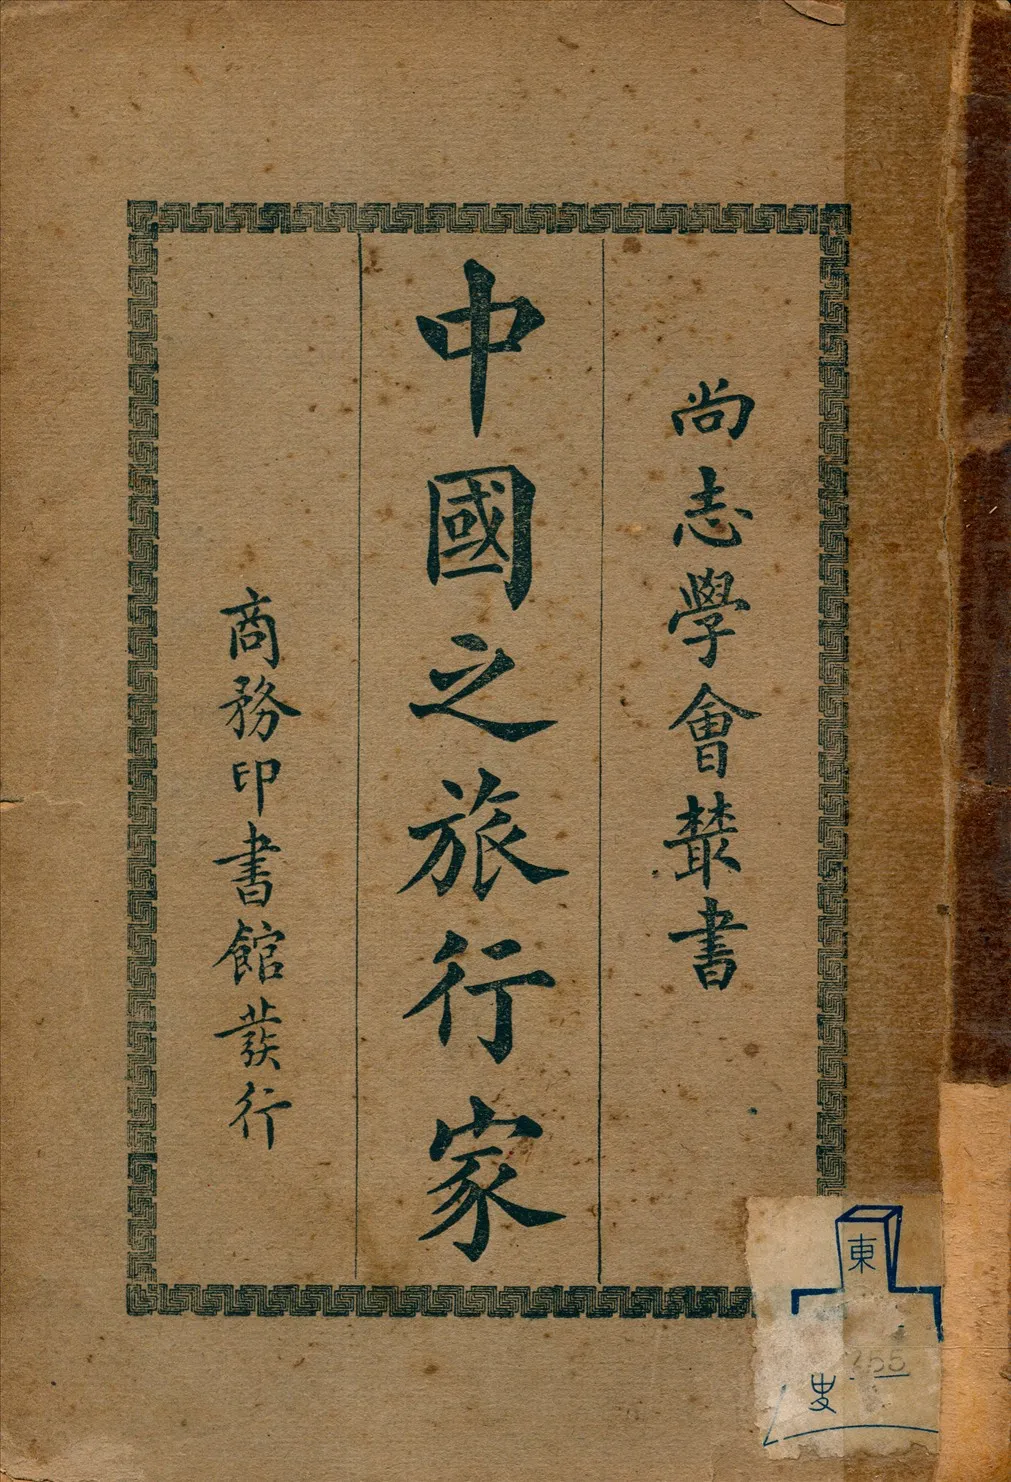 尚志學會叢書
中國之旅行家
商務印書館發行
東
史
355